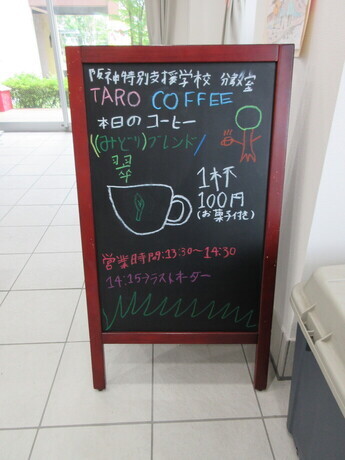 阪神特別支援学校 分教室
TARO COFFEE
本日のコーヒー
((みどり)ブレンド/
翠
1杯
100円
(お菓子付き)
営業時間:13:30～14:30
14:15ラストオーダー